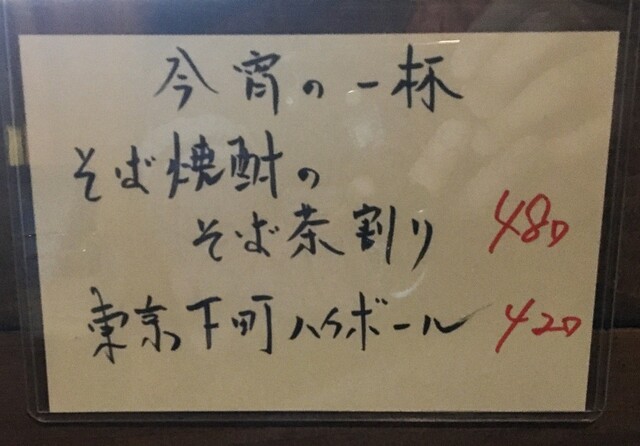 今宵の一杯
そば焼酎の
そば茶割り 480
東京下町ハイボール 420